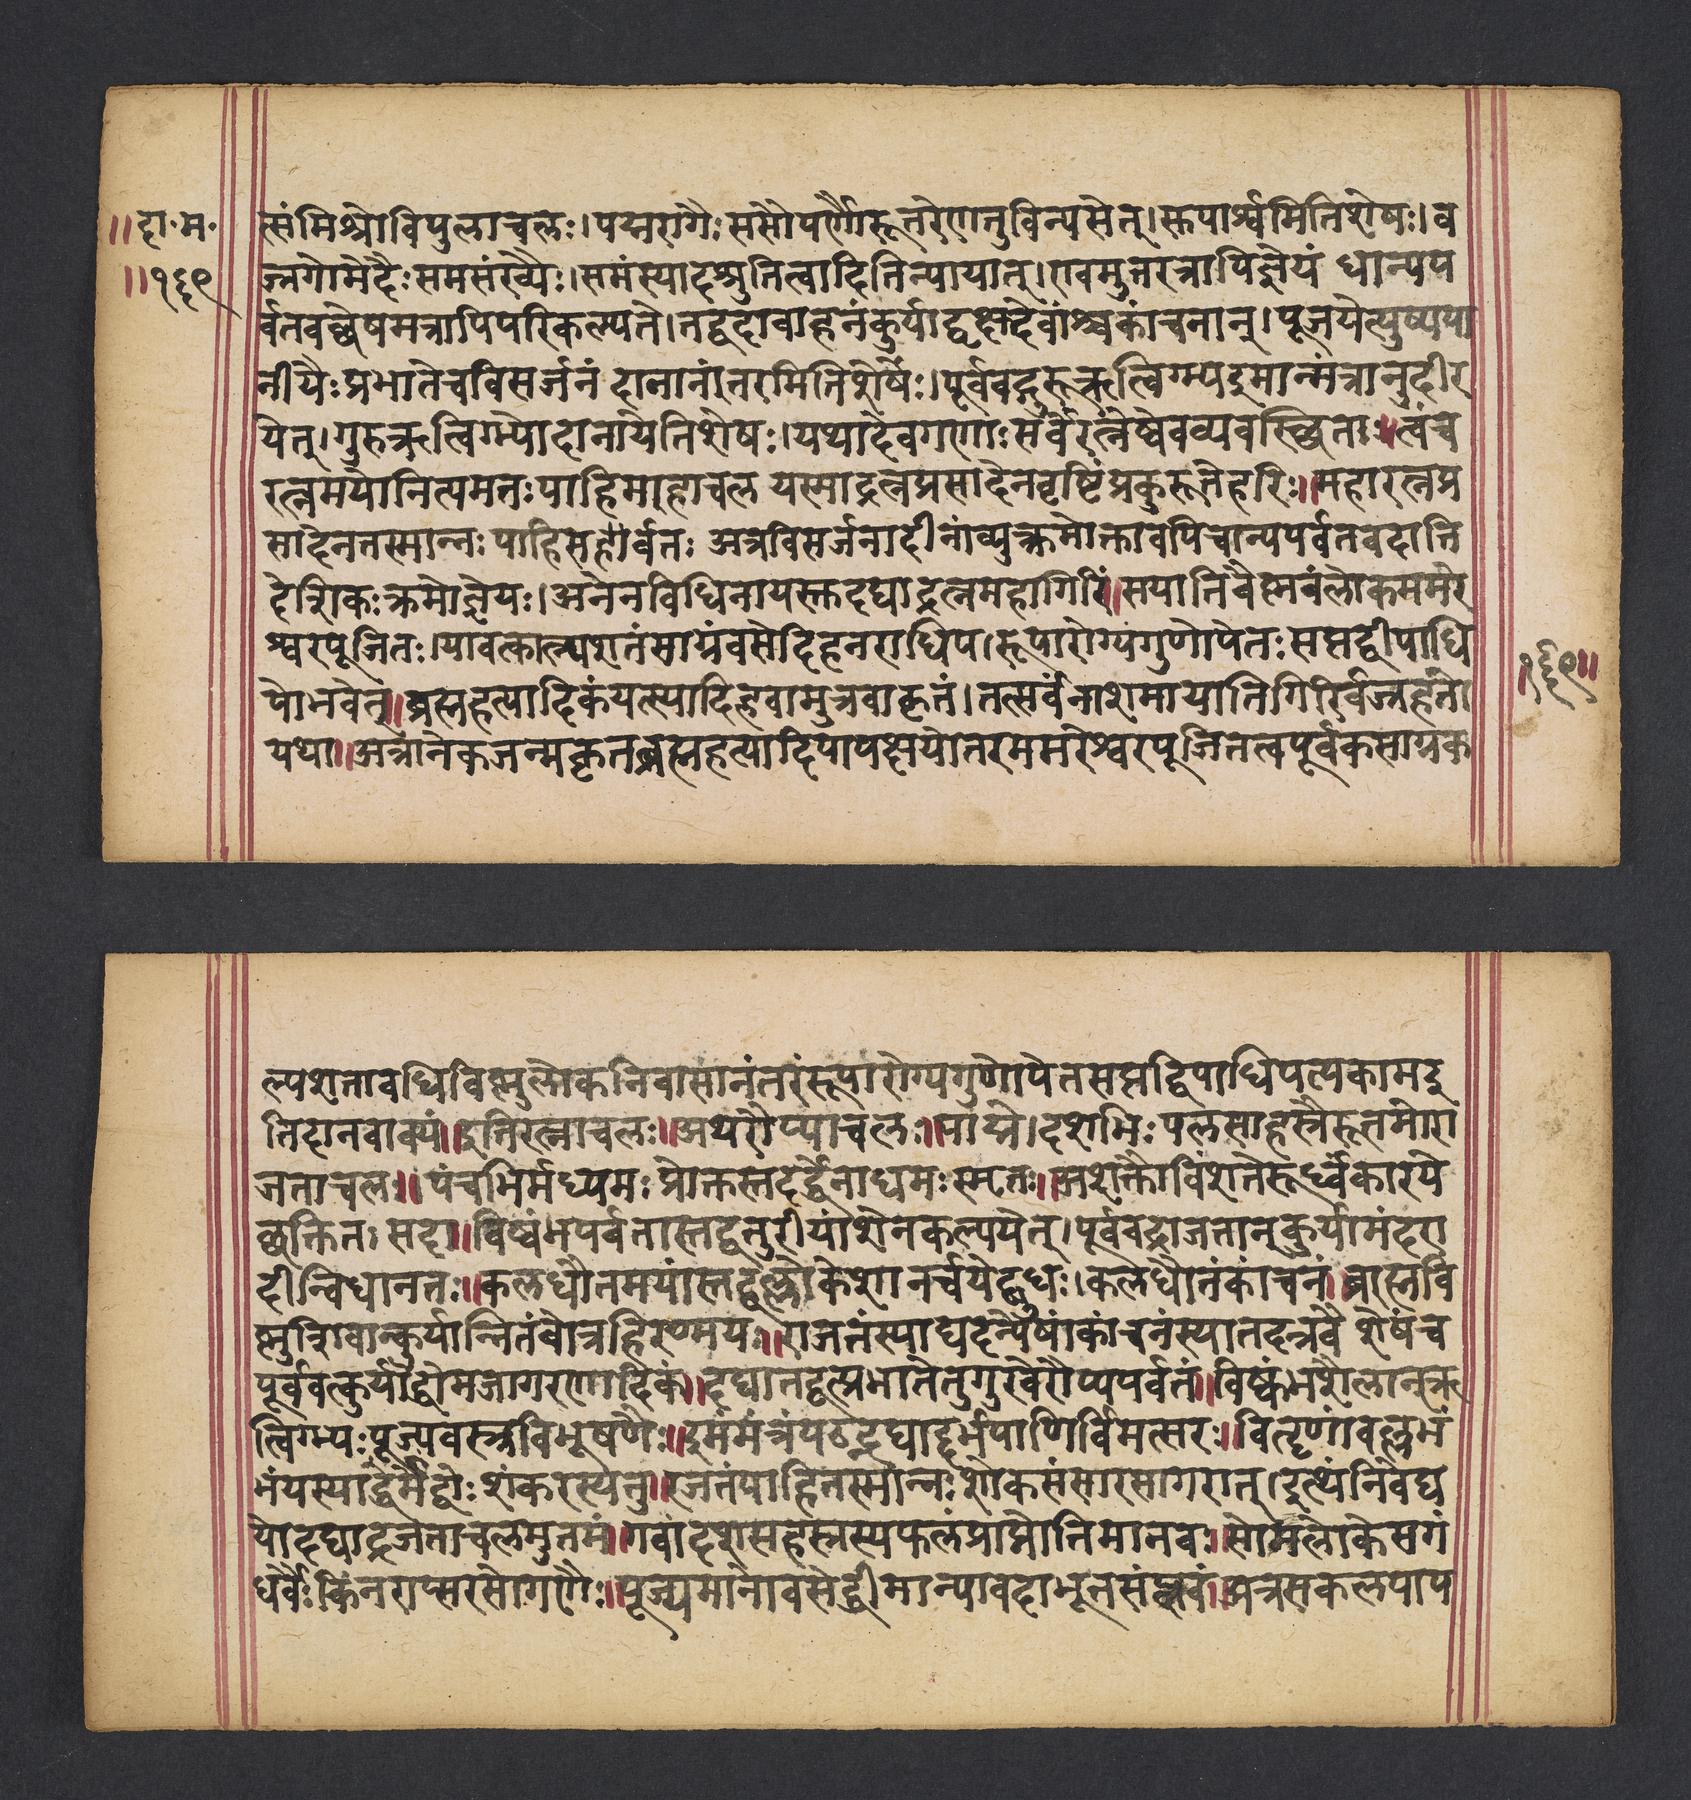 ॥दा॰म॰
॥१६९
त्संमिश्रोविपुलाचलः।पद्मरागैःससौपर्णैरूत्तरेणतुविन्यसेत्।स्तपार्श्वमितिशेषः।व
ज्रगोमेदैःसमसंख्यैः।समंस्यादश्रुतित्वादितिन्यायात्।एवमुत्तरत्रापिज्ञेयं धान्यप
र्वतवछेषमत्रापिपरिकल्पते।तद्वदावाहनंकुर्याद्वृक्षान्देवांश्चकांचनान्।पूजयेत्पुष्पपा
नीयैःप्रभातेचविसर्जनं दानानांतरमितिशेषः।पूर्ववद्गुरूऋत्विग्भ्यइमान्मंत्रानुदीर
येत्।गुरुऋत्विग्भ्योदानायेतिशेषः।यथादेवगणाःसर्वेरत्नेष्वेवव्यवस्थिताः॥त्वंच
रत्नमयोनित्यमतःपाहिमाहाचल यस्माद्रत्नप्रसादेनवृष्टिंप्रकुरूतेहरिः॥महारत्नप्र
सादेनतस्मान्नःपाहिसर्वतः अत्रविसर्जनादीनांव्युत्क्रमोक्तावपिचान्यपर्वतवदाति
देशिकःक्रमोज्ञेयः।अनेनविधिनायस्तदद्याद्रत्नमहागिरिं॥सयातिवैष्णवंलोकममरे
श्वरपूजितः।यावत्कल्पशतंसाग्रंवसेदिहनराधिप।रूपारोग्यगुणोपेतःसप्तद्वीपाधि
पोभवेत्॥ब्रह्महत्यादिकंयत्स्यादिहवामुत्रवाकृतं।तत्सर्वंनाशमायातिगिरिर्वज्रहतो
यथा॥अत्रानेकजन्मकृतब्रह्महत्यादिपापक्षयोतरममरेश्वरपूजितत्वपूर्वकसाग्रक
१६९॥
ल्पशतावधिविष्णुलोकनिवासानंतरंरूपारोग्यगुणोपेतसप्तद्विपाधिपत्यकामइ
तिदानवाक्यं॥इतिरत्नाचलः॥अथरौप्याचलः॥पाद्मे।दशभिःपलसाहस्रैरूत्तमोरा
जताचलः॥पंचभिर्मध्यमःप्रोक्तस्तदर्द्धेनाधमःस्मृतः॥अशक्तोविंशतेरूर्ध्वंकारये
छक्तितः सदा॥विष्कंभपर्वतास्तद्वत्तुरीयांशेनकल्पयेत्।पूर्ववद्राजतान्कुर्यामंदरा
दीन्विधानतः॥कलधौतमयांस्तद्वल्लोकेशानर्चयेद्बुधः।कलधौतंकांचनं॥ब्रह्मवि
ष्णुशिवान्कुर्यान्नितंबोत्रहिरण्मयः॥राजतंस्याद्यदन्येषांकांचनंस्यातदत्रवै शेषंच
पूर्ववत्कुर्याद्धोमजागरणादिकं॥दद्यातद्वत्प्रभातेतुगुरवेरौप्यपर्वतं॥विष्कंभशैलानृ
त्विग्भ्यःपूज्यवस्त्रविभूषणैः॥इमंमंत्रंपठन्दद्याद्दर्भपाणिर्विमत्सरः॥पितॄणांवल्लभं
भंयस्याद्धर्मेंद्वोःशंकरस्यतु॥रजतंपाहितस्मान्नःशोकसंसारसागरात्।इत्थंनिवेद्य
योदद्याद्रजताचलमुत्तमं॥गवांदशसहस्रस्यफलंप्राप्नोतिमानवः॥सोमलोकेसगं
धर्वैःकिंनराप्सरसांगणैः॥पूज्यमानोवसेद्धीमान्यावदाभूतसंप्लवं॥अत्रसकलपाप